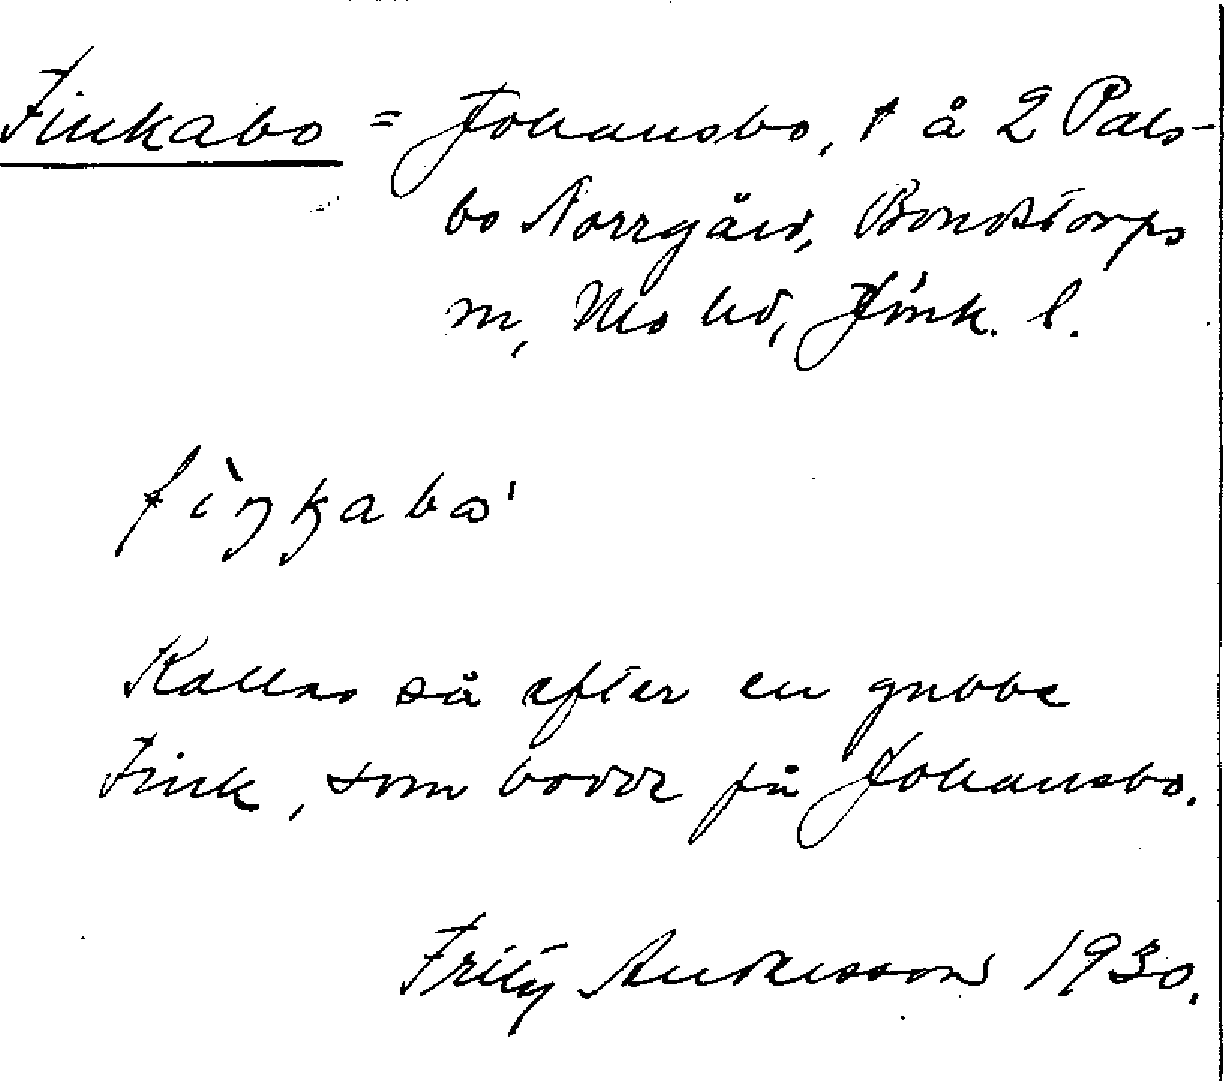 Finkabo = Johansbo, t å 2 Pals-
bo Norrgård, Bondstorps
sn, Mo hd, Jönk. l.
fìŋkabω'
Kallas så efter en gubbe
Fink, som bodde på Johansbo.
Fritz Andersson 1930.